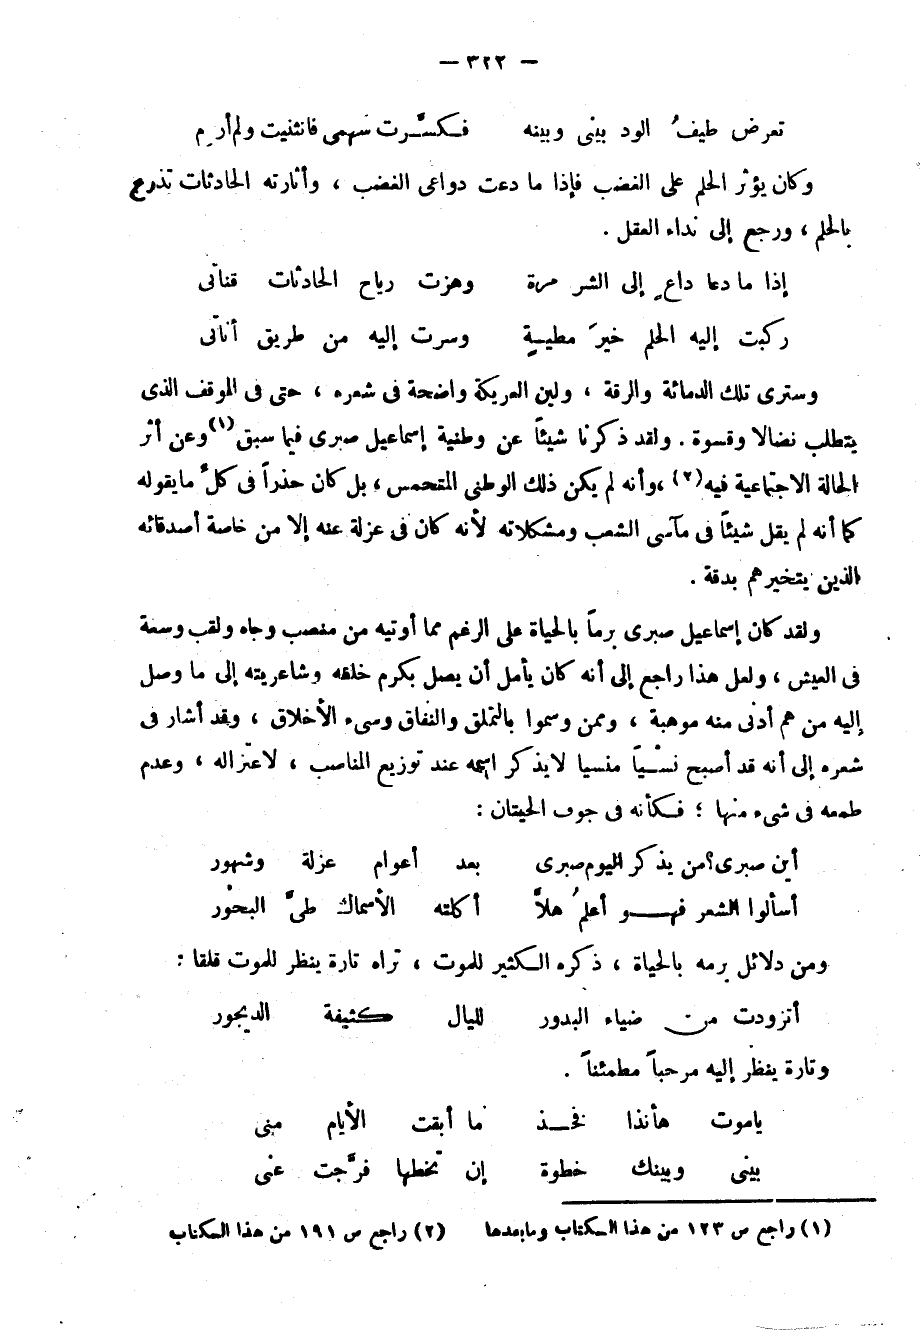 — ٣٢٢ —
تعرض طيفُ الود بينى وبينه فكسَّرت سهمى فانثنيت ولم أرمِ
وكان يؤثر الحلم على الغضب فإذا ما دعت دواعى الغضب ، وأثارته الحادثات تذرع
بالحلم ، ورجع إلى نداء العقل .
إذا ما دعا داعٍ إلى الشر مرة وهزت رياح الحادثات قناتى
ركبت إليه الحلم خيرَ مطيةٍ وسرت إليه من طريق أناتى
وسترى تلك الدماثة والرقة ، ولين العريكة واضحة فى شعره ، حتى فى الموقف الذى
يتطلب نضالا وقسوة . ولقد ذكرنا شيئاً عن وطنية إسماعيل صبرى فيما سبق(١) وعن أثر
الحالة الاجتماعية فيه(٢) ،وأنه لم يكن ذلك الوطنى المتحمس ، بل كان حذراً فى كلِّ ما يقوله
كما أنه لم يقل شيئاً فى مآسى الشعب ومشكلاته لأنه كان فى عزلة عنه إلا من خاصة أصدقائه
الذين يتخيرهم بدقة .
ولقد كان إسماعيل صبرى برماً بالحياة على الرغم مما أوتيه من منصب وجاه ولقب وسعة
فى العيش ، ولعل هذا راجع إلى أنه كان يأمل أن يصل بكرم خلقه وشاعريته إلى ما وصل
إليه من هم أدنى منه موهبة ، وممن وسموا بالتملق والنفاق وسىء الأخلاق ، وقد أشار فى
شعره إلى أنه قد أصبح نسْياً منسيا لا يذكر اسمه عند توزيع المناصب ، لاعتزاله ، وعدم
طمعه فى شىء منها ؛ فكأنه فى جوف الحيتان :
أين صبرى؟من يذكر اليوم صبرى بعد أعوام عزلة وشهور
أسألوا الشعر فهو أعلمُ هلاَّ أكلته الأسماك طىَّ البحور
ومن دلائل برمه بالحياة ، ذكره الكثير للموت ، تراه تارة ينظر للموت قلقا :
أتزودت من ضياء البدور لليال كثيفة الديجور
وتارة ينظر إليه مرحباً مطمئناً .
ياموت هأنذا فخذ ما أبقت الأيام منى
بينى وبينك خطوة إن تخطها فرَّجت عنى
(١) راجع ص ١٢٣ من هذا الكتاب ومابعدها (٢) راجع ص ١٩١ من هذا الكتاب